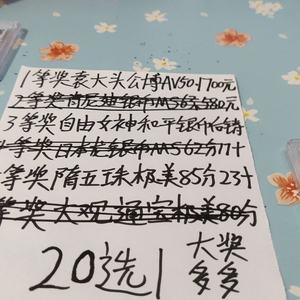 1等奖袁大头公博AU50 1700元
2等奖肯尼迪银币MS63 580元
3等奖自由女神和平银币
等奖日本龙银币MS62分
等奖隋五珠极美85分23十
等奖大观通宝极美80分
20选1
大奖
多多